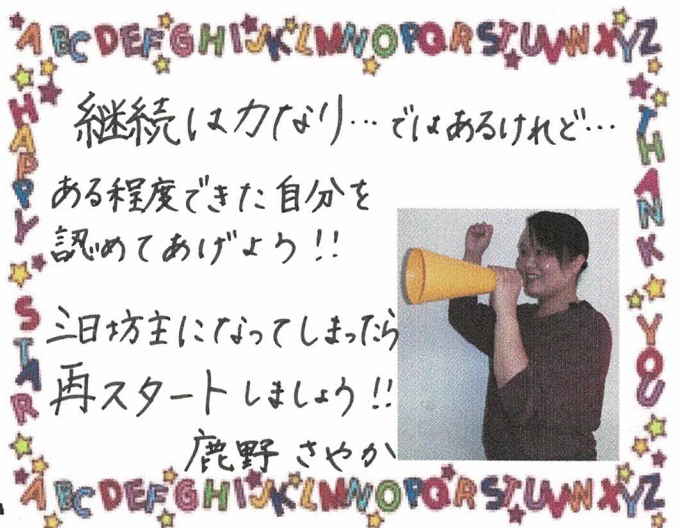 ABCDEFGHIJKLMNOPQRSTUVWXYZ
HAPPY STAR
THANK YOU
継続は力なり…ではあるけれど…
ある程度できた自分を
認めてあげよう!!
三日坊主になってしまったら
再スタートしましょう!!
鹿野 さやか
ABCDEFGHIJKLMNOPQRSTUVWXYZ